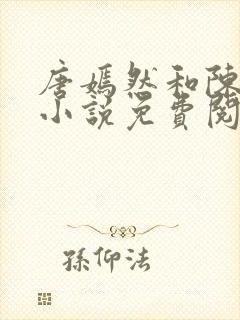 唐嫣然和陳
小說免費閱
孫仰法